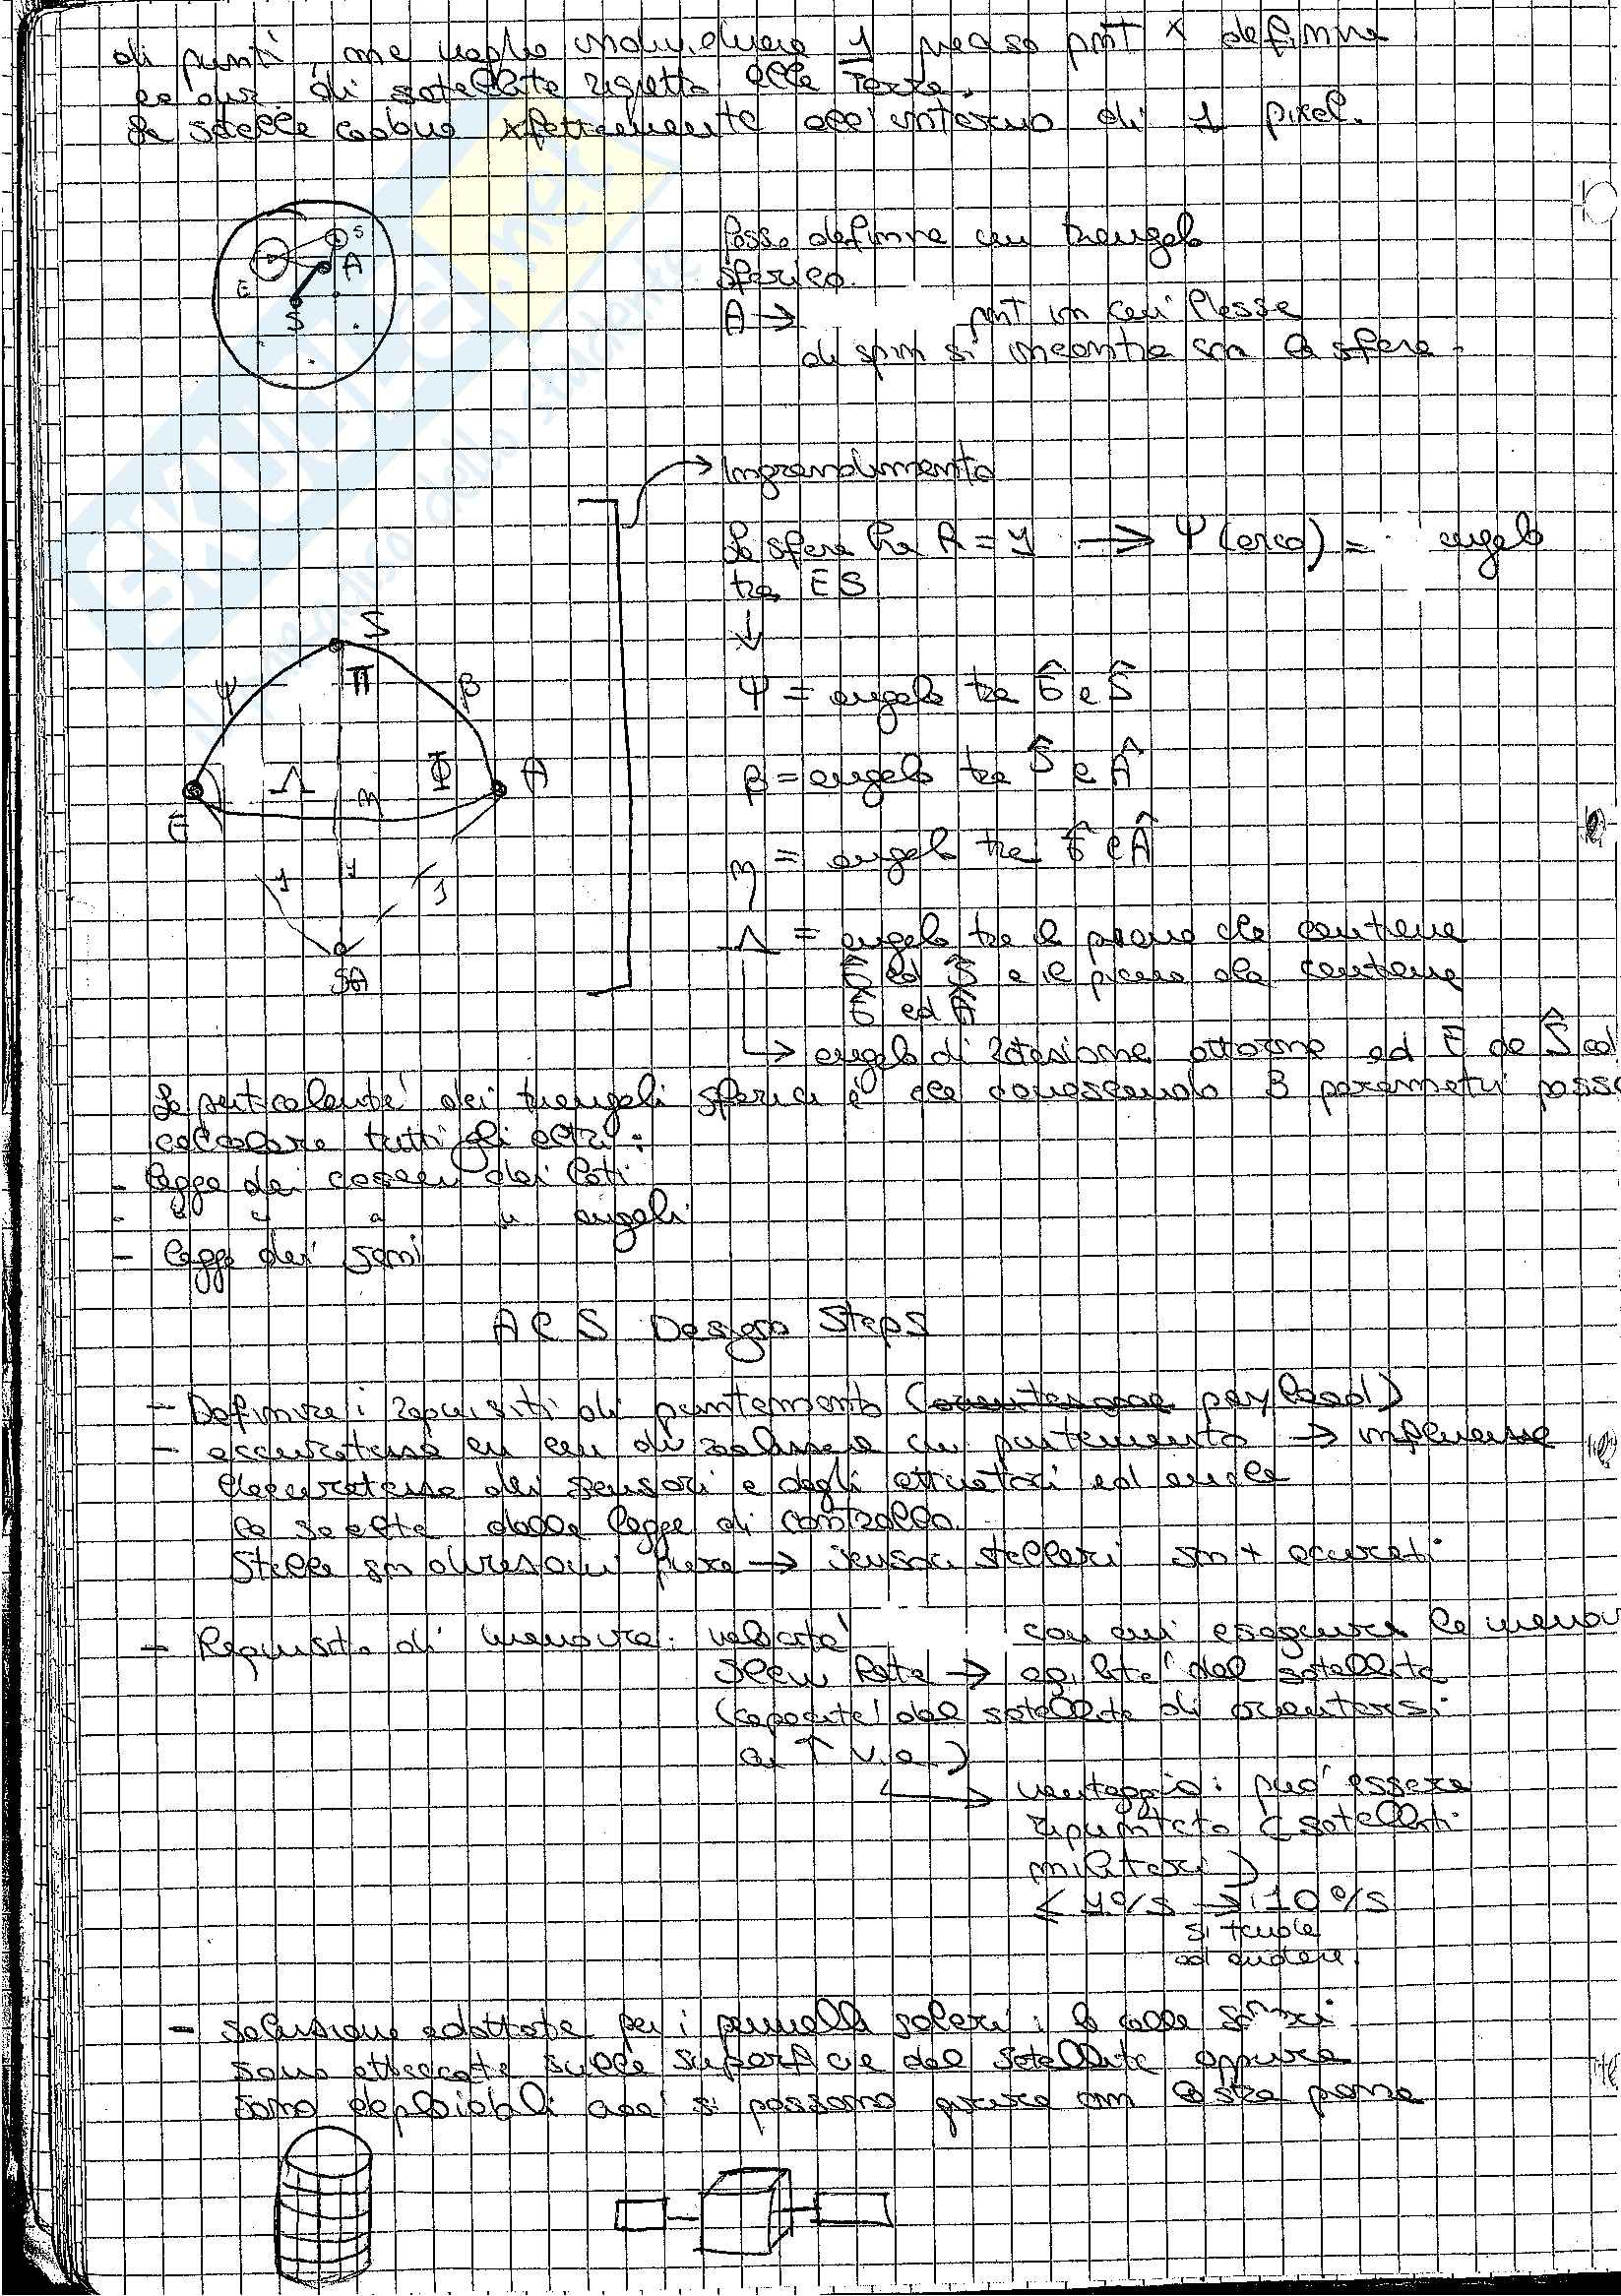 di punti, ma voglio individuare 1 preciso pnt x definire
la dir. di satellite rispetto alla Terra.
La stella cade xfettamente all'interno di 1 pixel.
S
A
E
S
Posso definire un triangolo
sferico.
A → pnt in cui l'asse
di spin si incontra con la sfera.
→ Ingrandimento
La sfera ha R = 1 → Ψ (arco) = angolo
tra ES
↓
S
Ψ Π β
Ψ = angolo tra Ê e Ŝ
Λ Φ A
E η
β = angolo tra Ŝ e Â
1 1 1
η = angolo tra Ê e Â
SA
Λ = angolo tra il piano che contiene
Ê ed Ŝ e il piano che contiene
Ê ed Â
↳ angolo di rotazione attorno ad E da Ŝ ad
La particolarità dei triangoli sferici è che conoscendo 3 parametri posso
calcolare tutti gli altri:
- legge dei coseni dei lati
- " " " " angoli
- legge dei seni
ACS Design Steps
- Definire i requisiti di puntamento (payload)
- accuratezza cui realizzare un puntamento → influenza
l'accuratezza dei sensori e degli attuatori ed anche
la scelta della legge di controllo.
Stelle sn direzioni fisse → sensori stellari sn + accurati
- Requisito di manovra: velocità con cui eseguire la manov
Slew Rate → agilità del satellite
(capacità del satellite di orientarsi
ad ↑ v.a.)
↳ vantaggio: può essere
ripuntato (satelliti
militari)
< 1°/s → 10°/s
si tende
ad andare.
- Soluzione adottata per i pannelli solari: le celle solari
sono attaccate sulla superficie del satellite oppure
sono deployabili così si possono girare